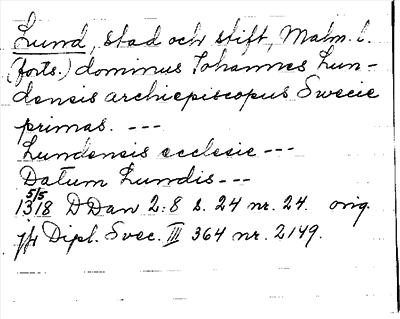 Lund, stad och stift, Malm. l.
(forts.) dominus Johannes Lun-
densis archiepiscopus Swecie
primas. ---
Lundensis ecclesie ---
Datum Lundis ---
5/5
1318 D Dan 2:8 s. 24 nr. 24. orig.
jfr Dipl. Svec. III 364 nr. 2149.